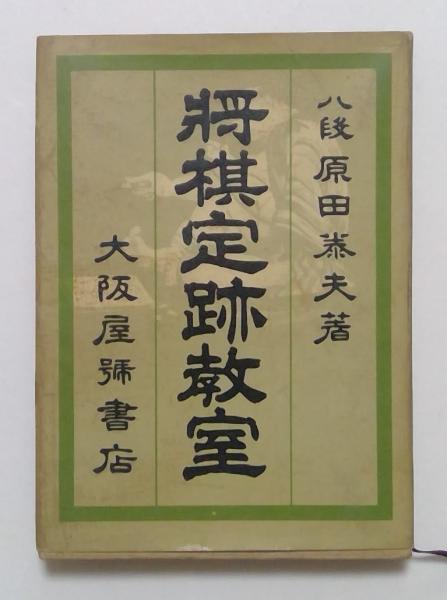 八段原田泰夫著
將棋定跡教室
大阪屋號書店